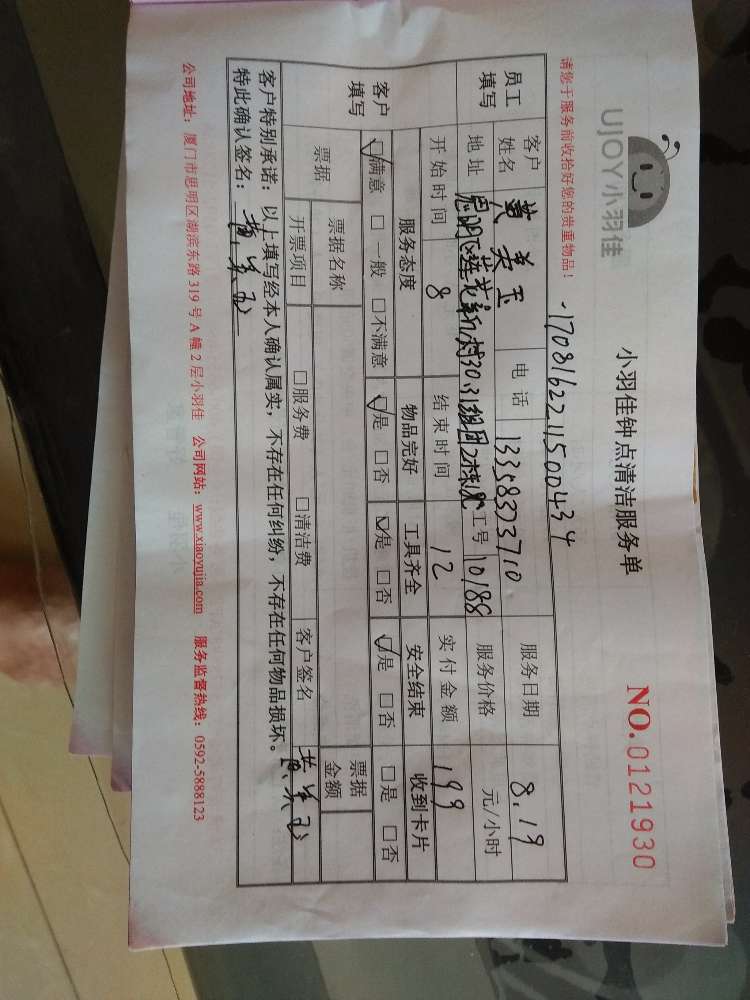 UJOY小羽佳
小羽佳钟点清洁服务单
NO.0121930
请您于服务前收拾好您的贵重物品！
-170816221150043​4
员工填写
客户姓名 黄美玉 电话 13358373710 服务日期 8.19
地址 思明区莲花新村30.31组团2栋 工号 10188 服务价格 元/小时
开始时间 8 结束时间 12 实付金额 199
客户填写
服务态度 物品完好 工具齐全 安全结束 收到卡片
☑满意 □一般 □不满意 ☑是 □否 ☑是 □否 ☑是 □否 □是 □否
票据 票据名称 票据金额
开票项目 □服务费 □清洁费 客户签名 黄美玉
客户特别承诺：以上填写经本人确认属实，不存在任何纠纷，不存在任何物品损坏。
特此确认签名：黄美玉
公司地址：厦门市思明区湖滨东路 319 号 A 幢 2 层小羽佳 公司网站：www.xiaoyujia.com 服务监督热线：0592-5888123